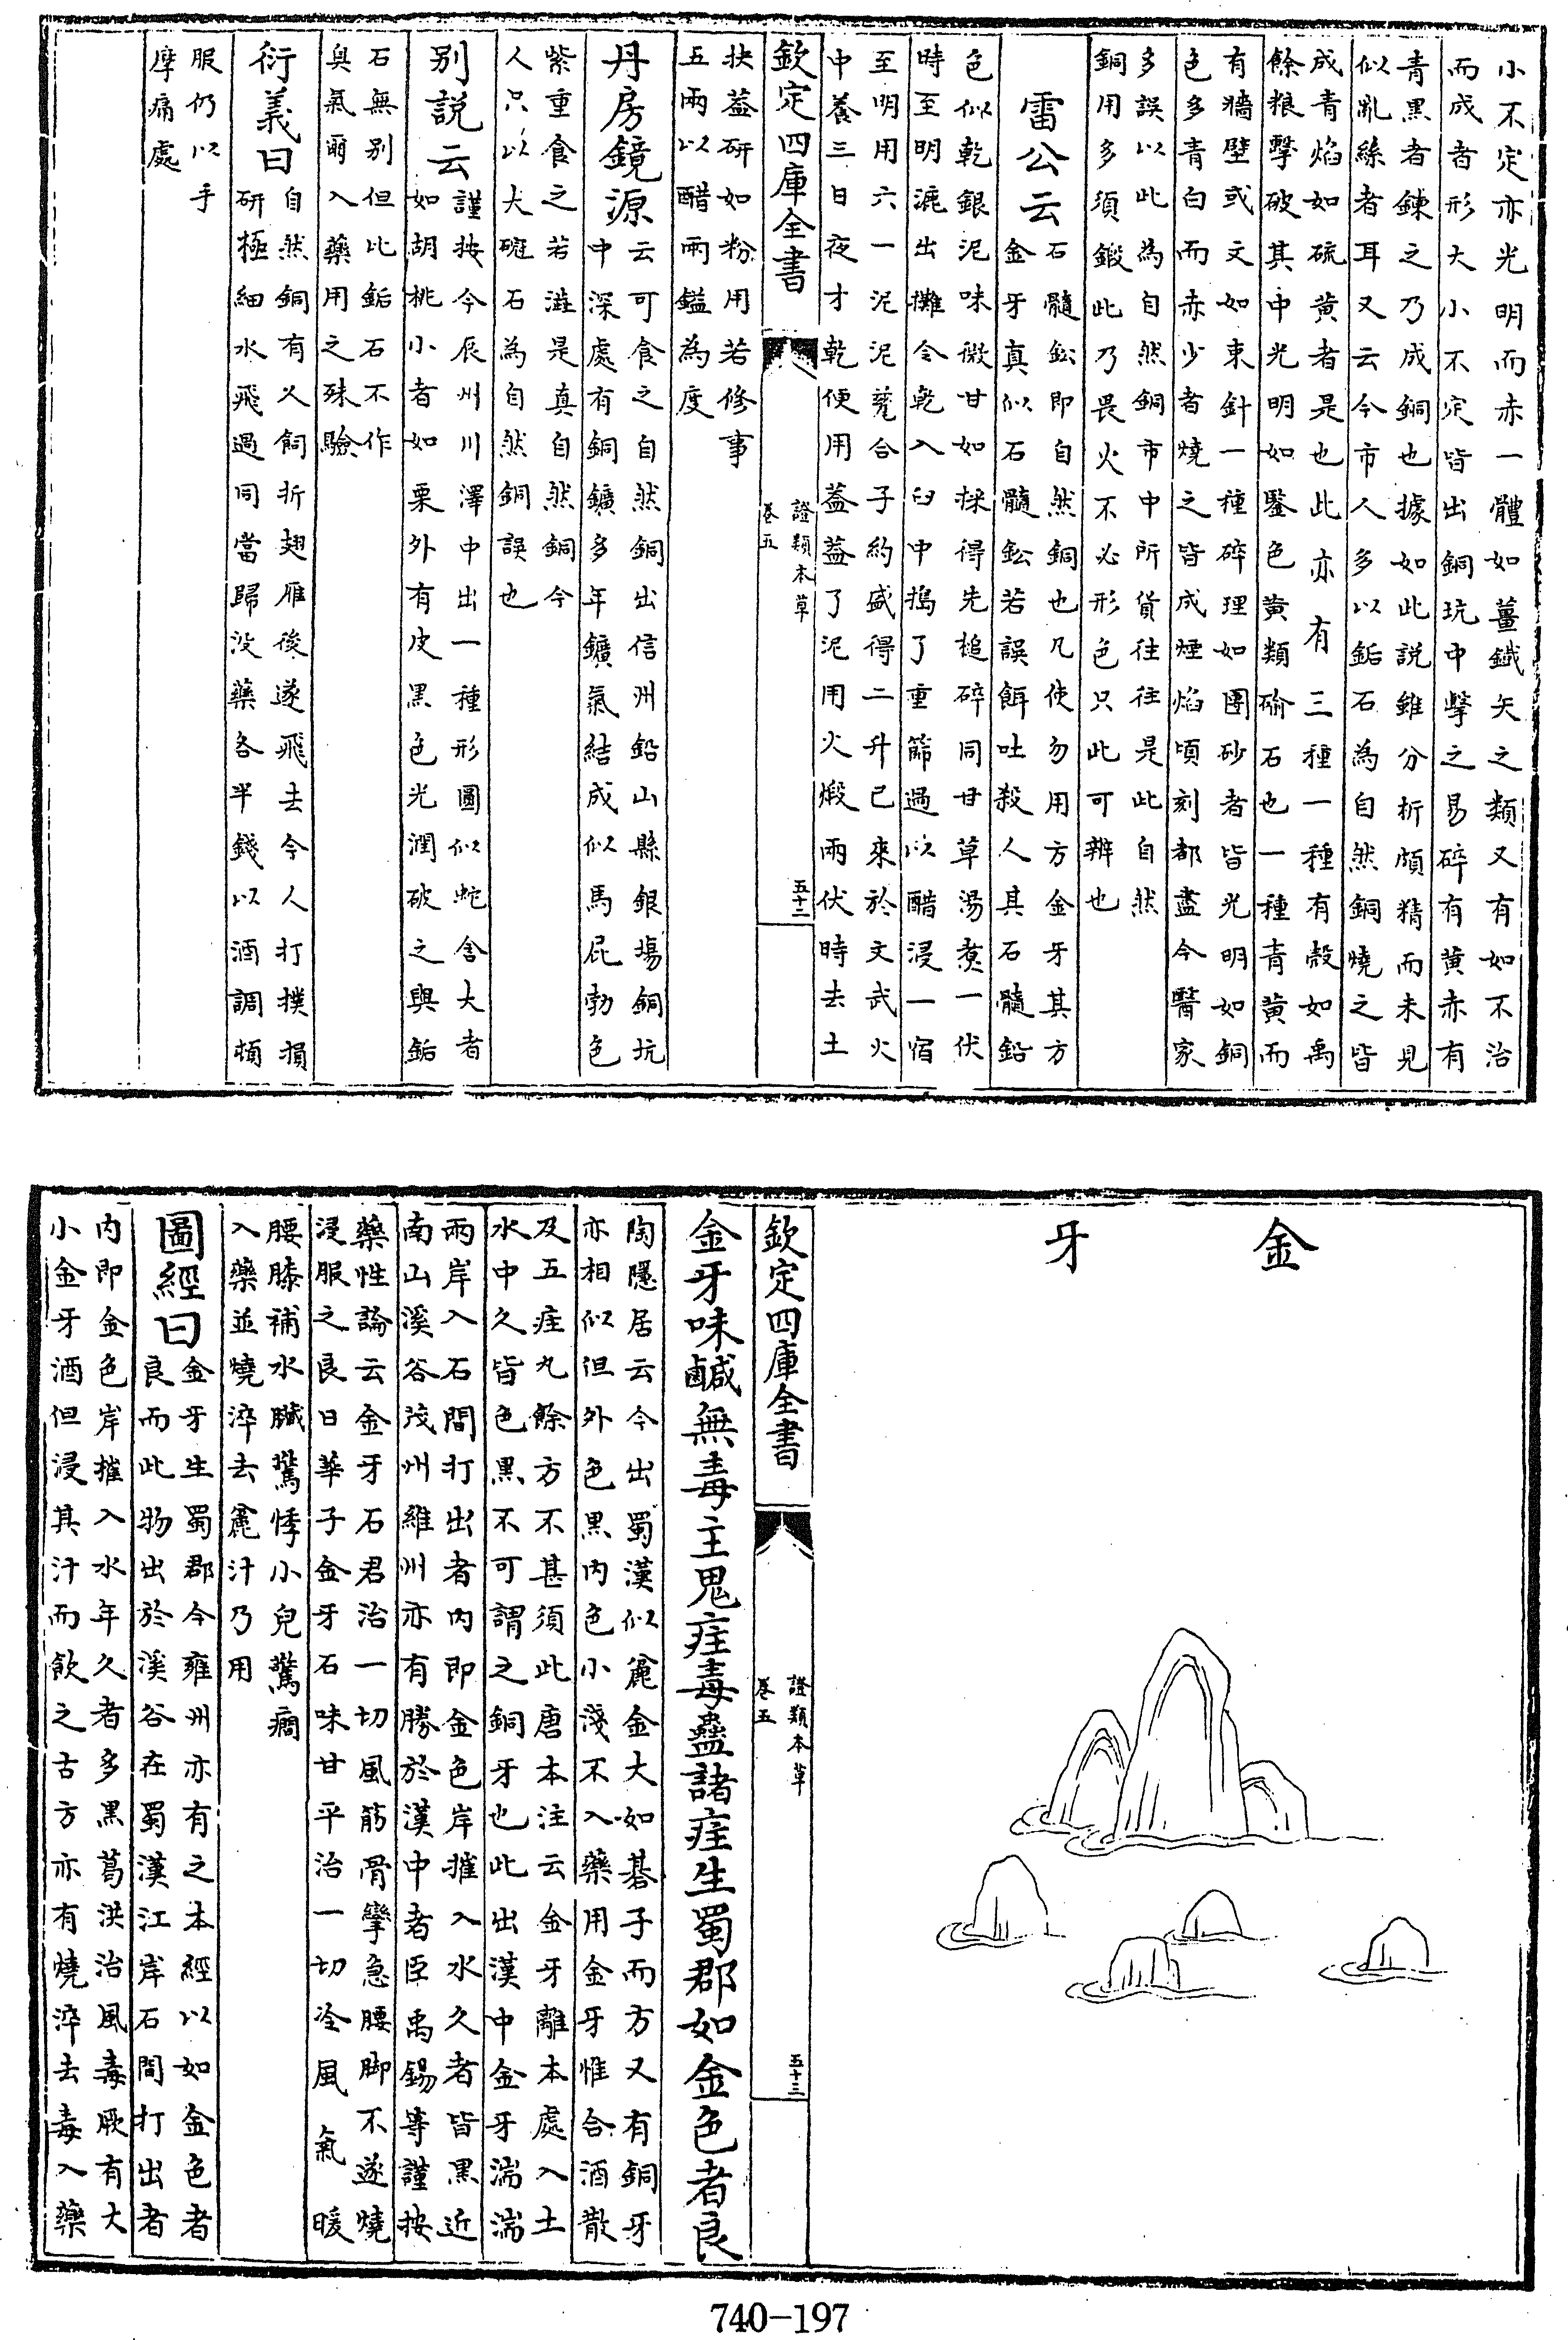 小不定亦光明而赤一體如薑鐵矢之類又有如不治
而成者形大小不定皆出銅坑中擊之易碎有黄赤有
青黒者錬之乃成銅也據如此説雖分析頗精而未見
似亂絲者耳又云今市人多以鉐石為自然銅燒之皆
成青焰如硫黄者是也此亦有三種一種有殻如禹
餘粮擊破其中光明如鑒色黄類鍮石也一種青黄而
有牆壁或文如束針一種碎理如團砂者皆光明如銅
色多青白而赤少者燒之皆成煙焰頃刻都盡今醫家
多誤以此為自然銅市中所貨往往是此自然
銅用多須鍛此乃畏火不必形色只此可辨也
雷公云
石髓鈆即自然銅也凡使勿用方金牙其方
金牙真似石髓鈆若誤餌吐殺人其石髓鉛
色似乾銀泥味微甘如採得先槌碎同甘草湯煮一伏
時至明漉出攤令乾入臼中搗了重篩過以醋浸一宿
至明用六一泥泥甆合子約盛得二升已來於文武火
中養三日夜才乾便用葢葢了泥用火煅兩伏時去土
欽定四庫全書
證類本草
卷五
五十二
抉葢研如粉用若修事
五兩以醋兩鎰為度
丹房鏡源
云可食之自然銅出信州鉛山縣銀塲銅坑
中深處有銅鑛多年鑛氣結成似馬屁勃色
紫重食之若澁是真自然銅今
人只以大碇石為自然銅誤也
别説云
謹按今辰州川澤中出一種形圓似蛇含大者
如胡桃小者如栗外有皮黒色光潤破之與鉐
石無别但比鉐石不作
臭氣爾入藥用之殊驗
衍義曰
自然銅有人飼折翅雁後遂飛去今人打撲損
研極細水飛過同當歸没藥各半錢以酒調頓
服仍以手
摩痛處
金牙
欽定四庫全書
證類本草
卷五
五十三
金牙味鹹無毒主鬼疰毒蠱諸疰生蜀郡如金色者良
陶隱居云今出蜀漢似麄金大如碁子而方又有銅牙
亦相似但外色黒内色小淺不入藥用金牙惟合酒散
及五疰丸餘方不甚須此唐本注云金牙離本處入土
水中久皆色黒不可謂之銅牙也此出漢中金牙湍湍
兩岸入石間打出者内即金色岸摧入水久者皆黒近
南山溪谷茂州維州亦有勝於漢中者臣禹錫等謹按
藥性論云金牙石君治一切風筋骨攣急腰脚不遂燒
浸服之良日華子金牙石味甘平治一切冷風氣暖
腰膝補水臟驚悸小兒驚癇
入藥並燒淬去麄汁乃用
圖經曰
金牙生蜀郡今雍州亦有之本經以如金色者
良而此物出於溪谷在蜀漢江岸石間打出者
内即金色岸摧入水年久者多黒葛洪治風毒厥有大
小金牙酒但浸其汁而飲之古方亦有燒淬去毒入藥
740-197